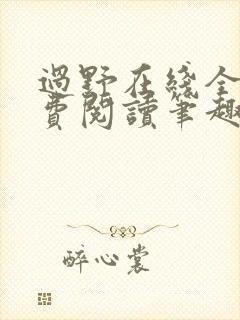 過野在綫全
費閱讀筆趣
醉心裳